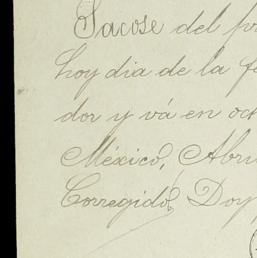 Sacose del pr
hoy dia de la fe
dor y vá en oct
México, Abri
Corregido, Doy